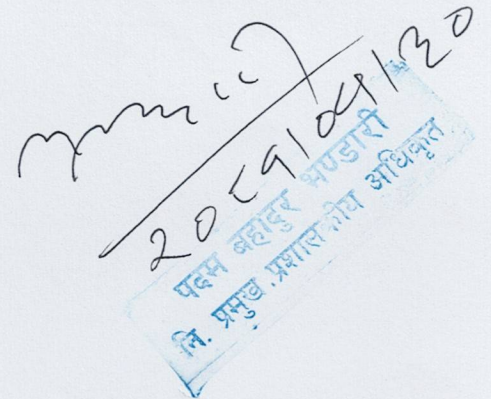 २०८१।०९।३०
पदम बहादुर भण्डारी
नि. प्रमुख प्रशासकीय अधिकृत